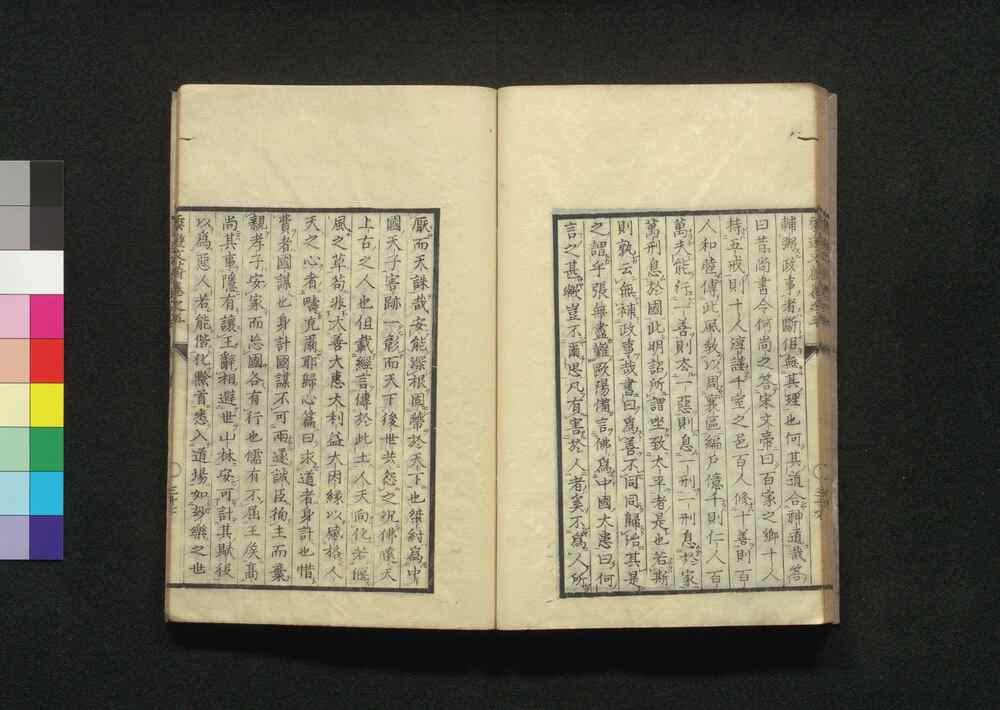 輔翊政事者斷但無其理也何其道合神道哉答
曰昔尚書令何尚之答宋文帝曰百家之鄉十人
持五戒則十人淳謹千室之邑百人修十善則百
人和睦傳此風教以周寰區編戶億千則仁人百
萬夫能行一善則去一惡去一惡則息一刑一刑息於家
萬刑息於國此明詔所謂坐致太平者是也若斯
則孰云無補政事哉書曰爲善不同同歸治其是
之謂乎張無盡難歐陽脩言佛爲中國大患曰何
言之甚歟豈不爾思凡有害於人者奚不爲人所
厭而天誅哉安能深根固蔕於天下也桀紂爲中
國天子害跡一彰而天下後世共怨之況佛遠天
上古之人也但載經言傳於此土人天向化若偃
風之草苟非大善大惠大利益大因緣以感格人
天之心者疇克爾耶歸心篇曰求道者身計也惜
費者國謀也身計國謀不可兩遂誠臣徇主而棄
親孝子安家而忘國各有行也儒有不屈王侯高
尚其事隱有讓王辭相避世山林安可計其賦役
以爲惡人若能偕化黔首悉入道場如妙樂之世